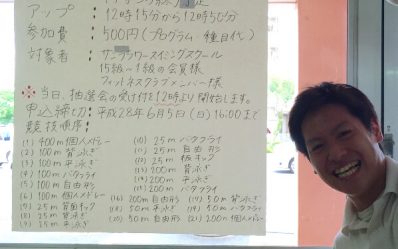 アップ : 12時15分から12時50分
参加費 : 500円(プログラム・種目代)
対象者 : サンフラワースイミングスクール
15級～1級の会員様
フィットネスクラブメンバー様
※当日、抽選会の受け付を12時より開始します。
申込締切: 平成28年6月5日(日)16:00まで
競技順序:
(1) 400m個人メドレー
(2) 100m背泳ぎ
(3) 100m平泳ぎ
(4) 100mバタフライ
(5) 100m自由形
(6) 100m個人メドレー
(7) 25m背面キック
(8) 25m背泳ぎ
(9) 25m平泳ぎ
(10) 25mバタフライ
(11) 25m自由形
(12) 25m板キック
(13) 200m背泳ぎ
(14) 200m平泳ぎ
(15) 200mバタフライ
(16) 200m自由形
(17) 50m背泳ぎ
(18) 50m平泳ぎ
(19) 50mバタフライ
(20) 50m自由形
(21) 200m個人メドレー